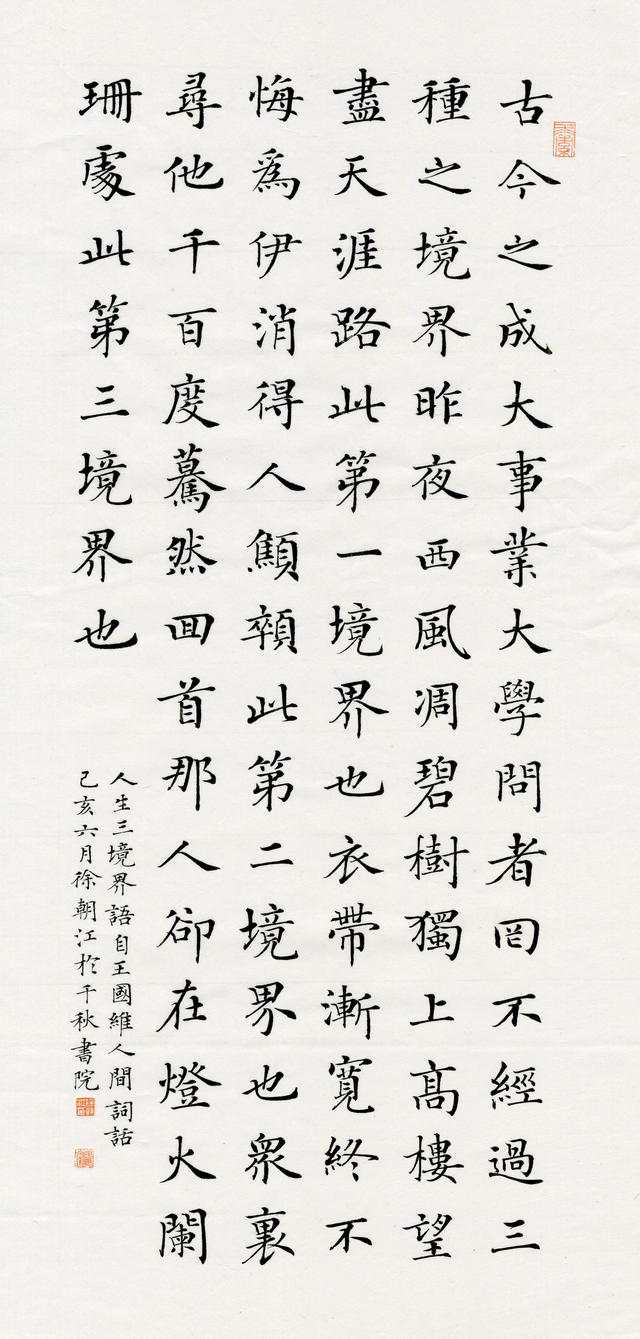 古今之成大事業大學問者罔不經過三
種之境界昨夜西風凋碧樹獨上高樓望
盡天涯路此第一境界也衣帶漸寬終不
悔爲伊消得人顦顇此第二境界也眾裏
尋他千百度驀然回首那人卻在燈火闌
珊處此第三境界也
人生三境界語自王國維人間詞話
己亥六月徐朝江於千秋書院